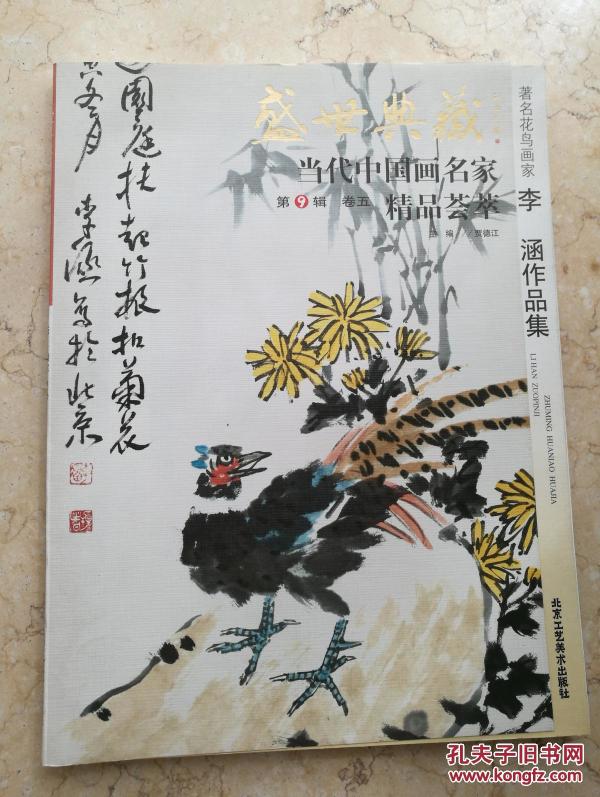 盛世典藏
当代中国画名家
第9辑 卷五 精品荟萃
主编/贾德江
著名花鸟画家
李涵作品集
LI HAN ZUOPINJI
ZHUMING HUANIAO HUAJIA
北京工艺美术出版社
园庭扶起竹报扣菊花
冬月李涵写于北京
孔夫子旧书网
www.kongfz.com